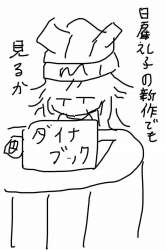 日扇礼子の新作でも
見るか
ダイナ
ブック